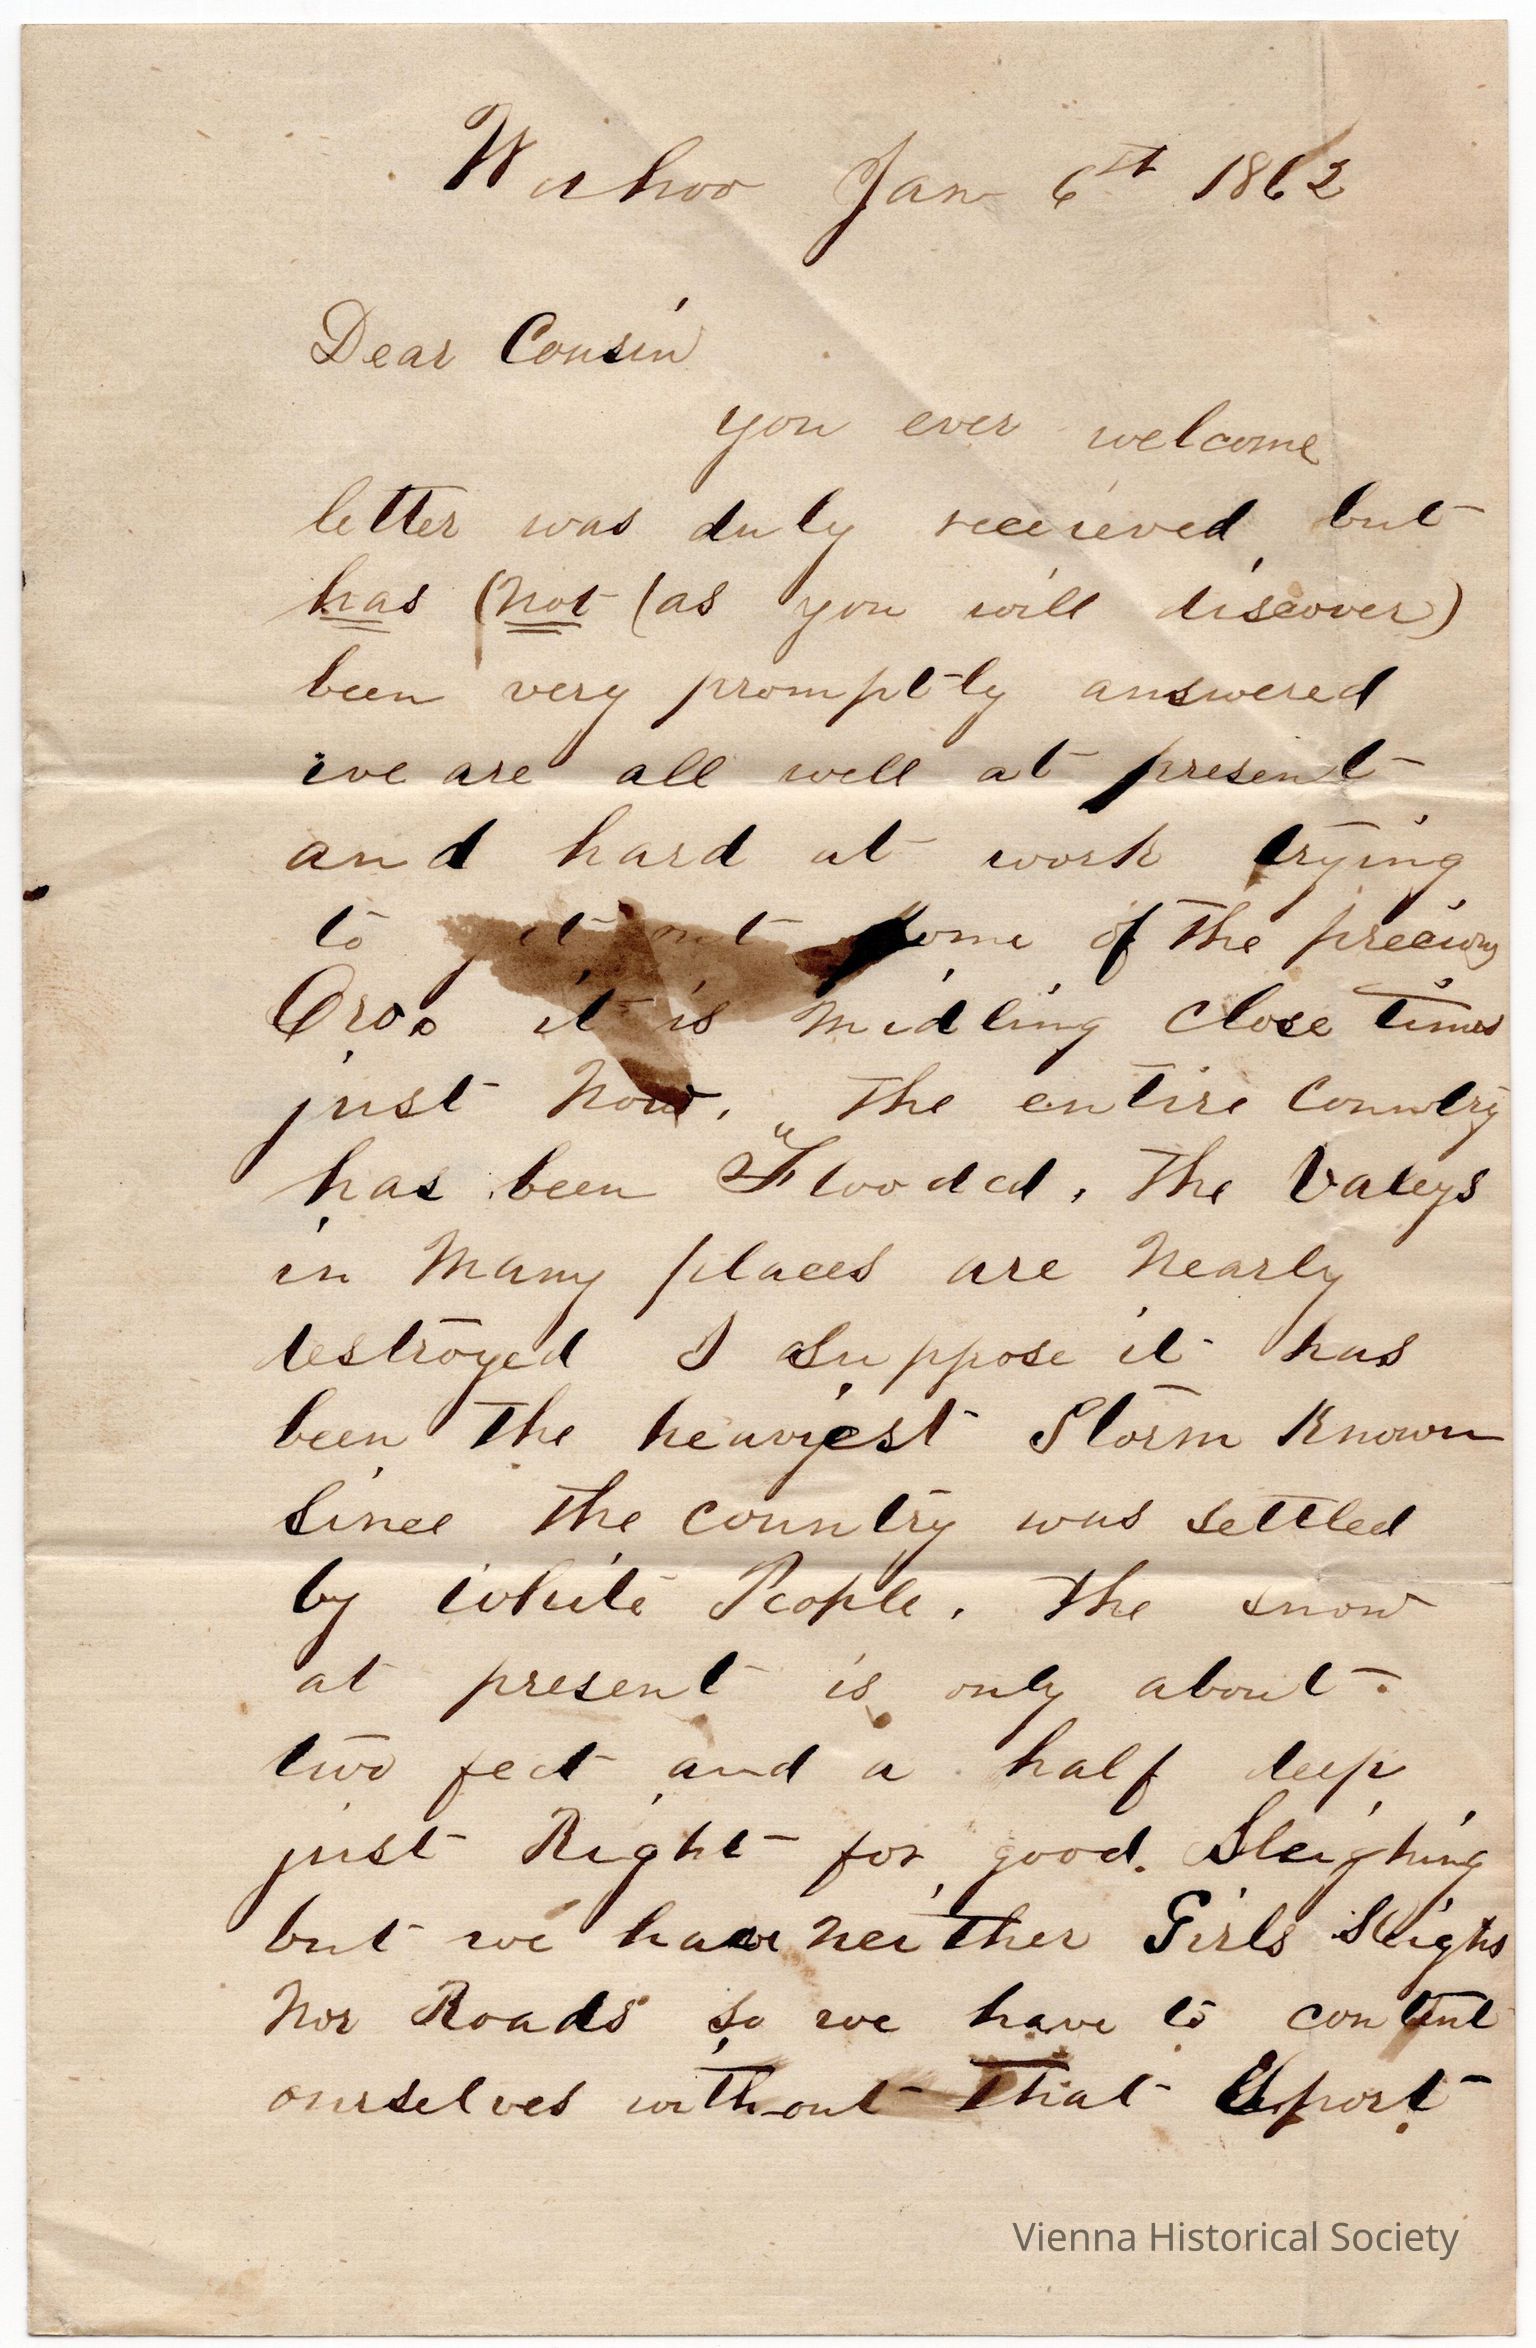 Wahoo Jan 6th 1862
Dear Cousin
you ever welcome
letter was duly receieved, but
has (not (as you will discover)
been very promptly answered
we are all well at present
and hard at work trying
to get out some of the precious
Oro. it is midling close times
just now. The entire Country
has been "Flooded, The Valeys
in Many places are nearly
destroyed I Suppose it has
been The heaviest Storm Known
Since The country was settled
by White People. The snow
at present is only about
two feet and a half deep
just Right for good. Sleighing
but we have neither Girls Sleighs
Nor Roads so we have to content
ourselves without That Sport
Vienna Historical Society